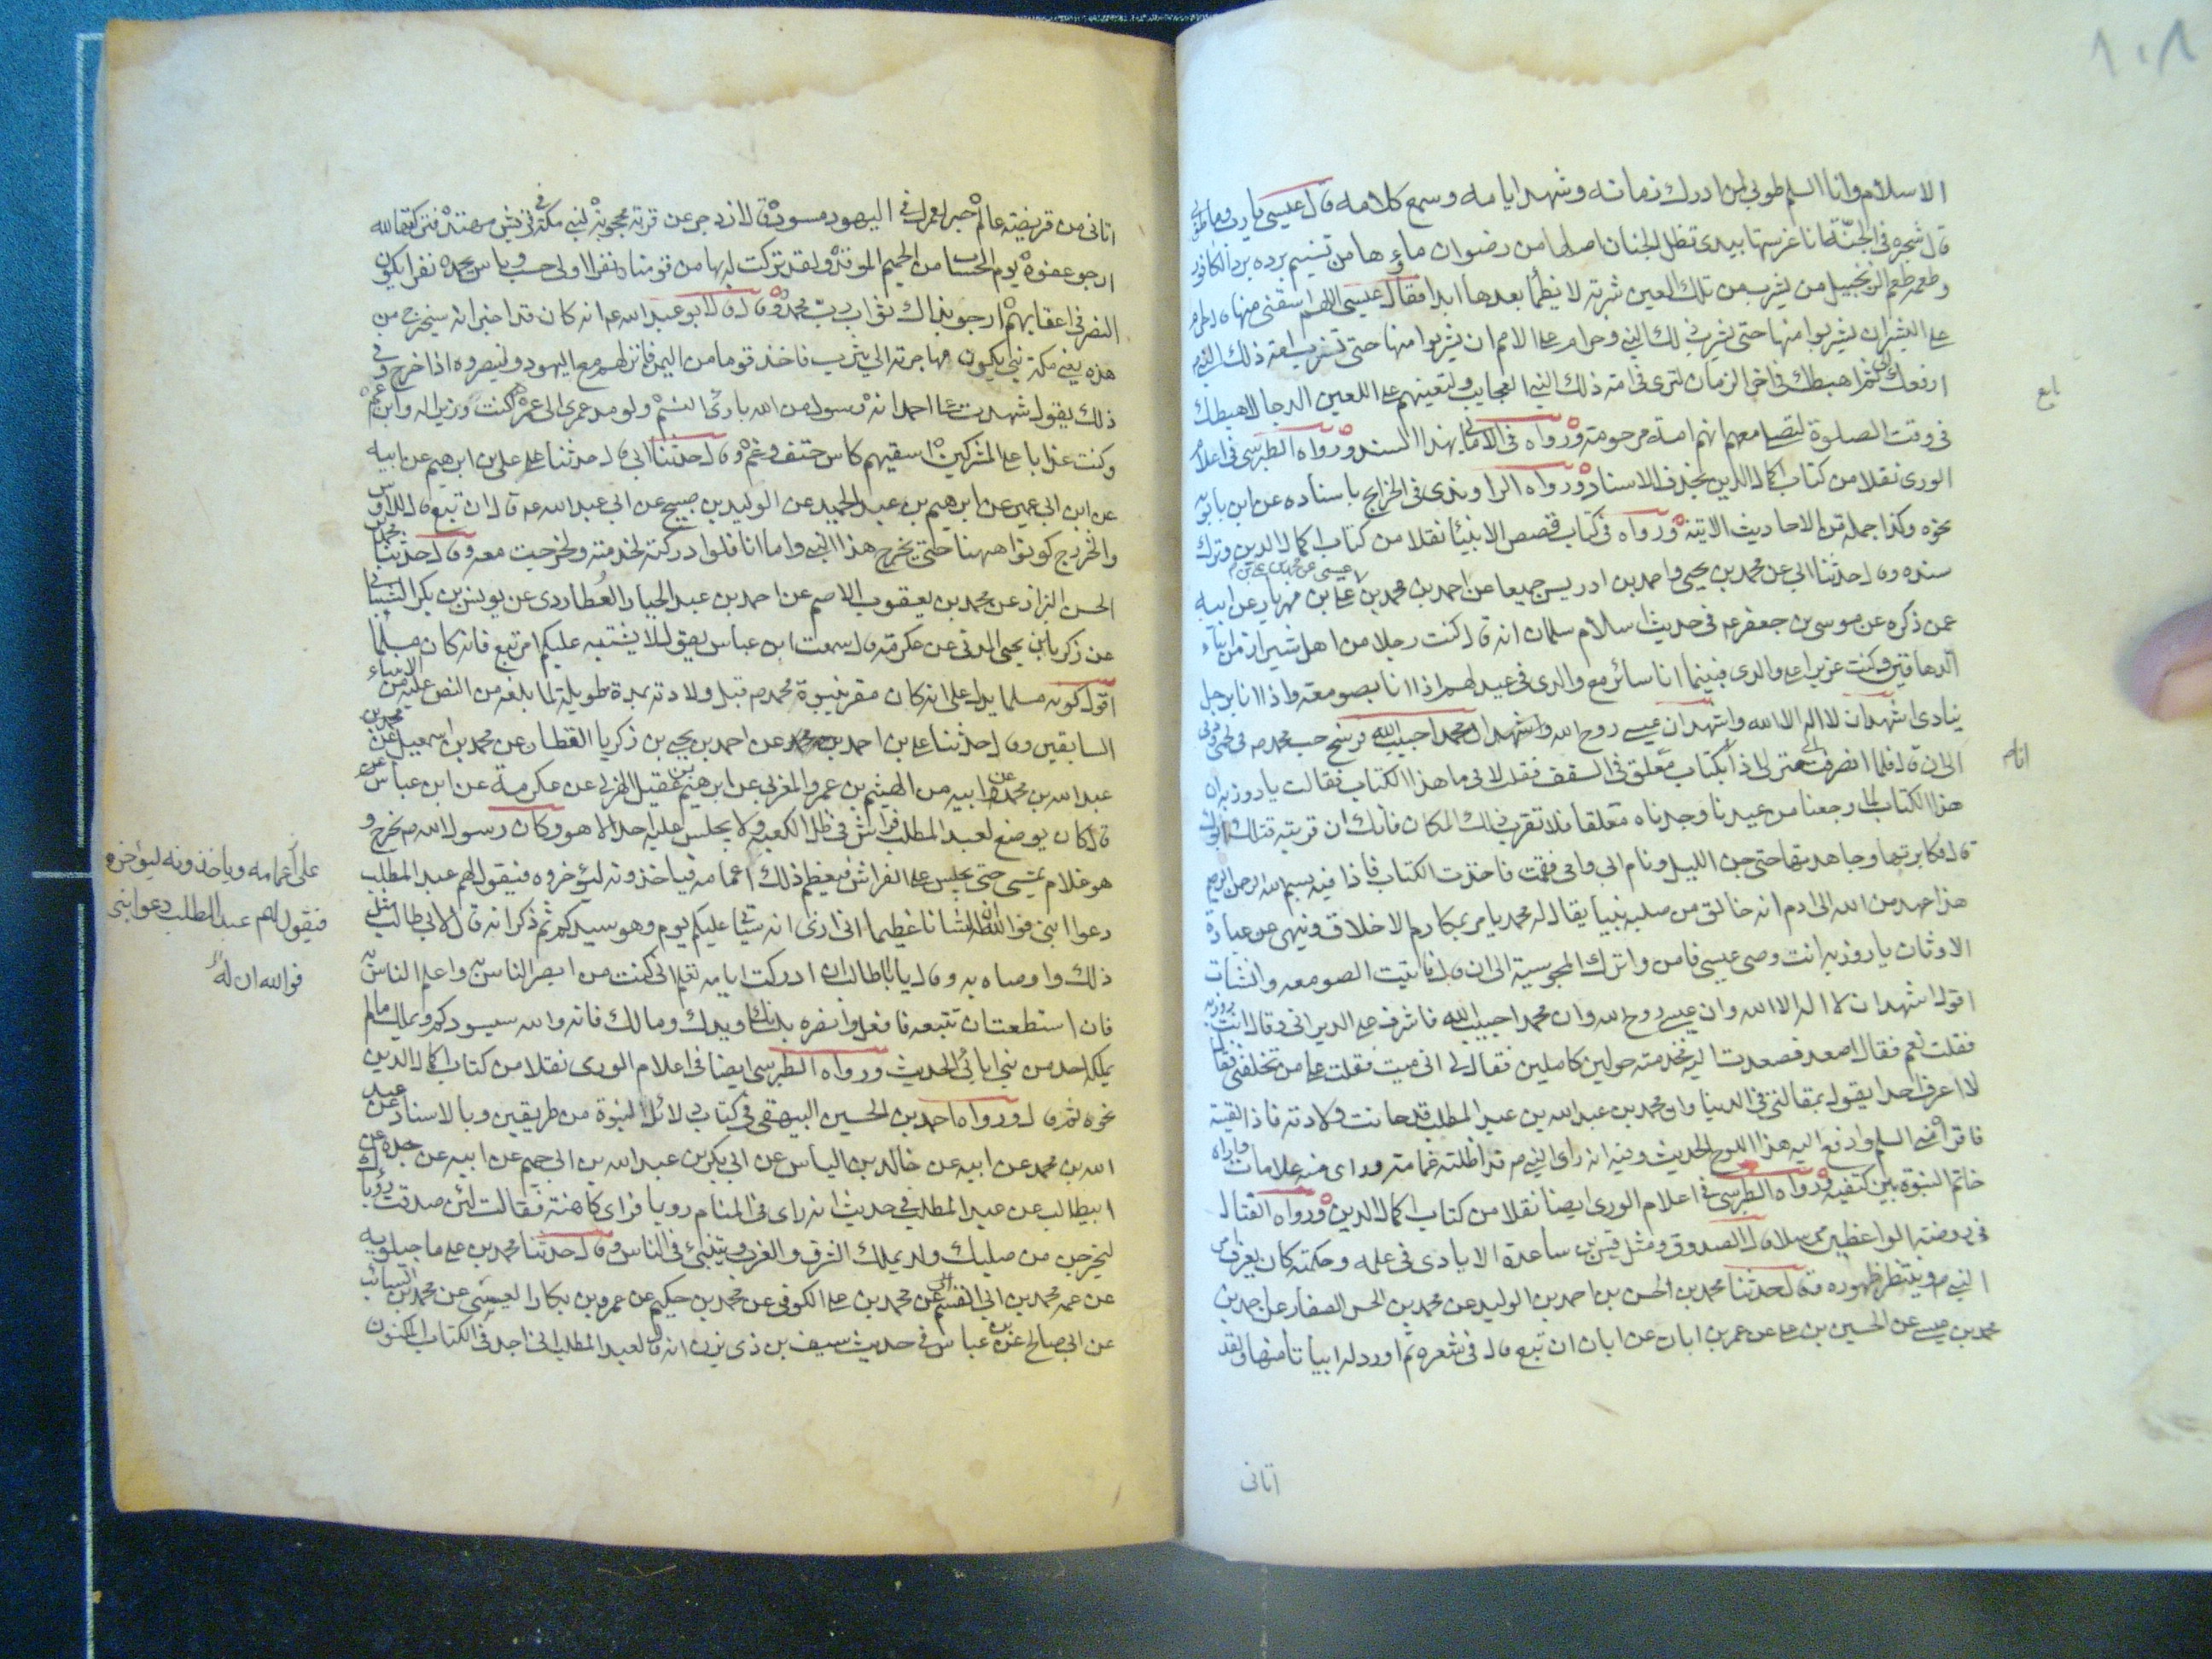 ١٠٨
الاسلام وانا السلم طوبى لمن ادرك زمانه وشهد ايامه وسمع كلامه قال عيسى يا رب وما طوبى
قال شجرة في الجنة انا غرستها بيدى تظل الجنان اصلها من رضوان ماؤها من تسنيم برده برد الكافور
وطعمه طعم الزنجبيل من يشرب من تلك العين شربة لا يظمأ بعدها ابدا فقال عيسى اللهم اسقنى منها قال حرام
على البشر ان يشربوا منها حتى يشرب ذلك النبي وحرام على الامم ان يشربوا منها حتى تشرب امة ذلك النبي
ارفعك الى ثم اهبطك في اخر الزمان لترى في امة ذلك النبي العجايب ولتعينهم على اللعين الدجال اهبطك
في وقت الصلوة لتصلى معهم انهم امة مرحومة ورواه في الامالى بهذا السند ورواه الطبرسى في اعلام
الورى نقلا من كتاب اكمال الدين بحذف الاسناد ورواه الراوندى في الخرايج باسناده عن ابن بابويه
نحوه وكذا جملة من الاحاديث الاتية ورواه في كتاب قصص الانبيا نقلا من كتاب اكمال الدين وترك
سنده وقال حدثنا ابي عن محمد بن يحيى واحمد بن ادريس جميعا عن احمد بن محمد بن عيسى عن محمد بن علي بن مهزيار عن ابيه
عمن ذكره عن موسى بن جعفر ع في حديث اسلام سلمان انه قال كنت رجلا من اهل شيراز من ابناء
الدهاقين وكنت عزيزا على والدى فبينما انا سائر مع والدى في عيد لهم اذا انا بصومعة واذا انا برجل
ينادى اشهد ان لا اله الا الله واشهد ان عيسى روح الله واشهد ان محمدا حبيب الله فرسخ حب محمد ص في لحمى ودمى
الى ان قال فلما انصرفت الى منزلى اذا بكتاب معلق في السقف فقلت لامى ما هذا الكتاب فقالت يا روزبه ان
هذا الكتاب لما رجعنا من عيدنا وجدناه معلقا فلا تقرب ذلك المكان فانك ان قربته قتلك ابوك
قال فكابرتها وجاهدتها حتى جن الليل ونام ابى وامى فقمت فاخذت الكتاب فاذا فيه بسم الله الرحمن الرحيم
هذا عهد من الله الى ادم انه خالق من صلبه نبيا يقال له محمد يامر بمكارم الاخلاق وينهى عن عبادة
الاوثان يا روزبه انت وصى عيسى فامن واترك المجوسية الى ان قال فاتيت الصومعه وانشات
اقول اشهد ان لا اله الا الله وان عيسى روح الله وان محمدا حبيب الله فاشرف على الديرانى وقال انت روزبه
فقلت نعم فقال اصعد فصعدت اليه فخدمته حولين كاملين فقال لى انى ميت فقلت على من تخلفنى فقال
لا اعرف احدا يقول بمقالتى في الدنيا وان محمد بن عبد الله بن عبد المطلب قد حانت ولادته فاذا لقيته
فاقرأه عنى السلم وادفع اليه هذا اللوح الحديث وفيه انه راى النبي ص قد اظلته غمامة وراى منه علامات واراه
خاتم النبوة بين كتفيه ورواه الطبرسى في اعلام الورى ايضا نقلا من كتاب اكمال الدين ورواه الفتال
في روضة الواعظين مرسلا قال الصدوق ومثل قس بن ساعدة الايادى في علمه وحكمته كان يعرف من
النبي ص وينتظر ظهوره قال حدثنا محمد بن الحسن بن احمد بن الوليد عن محمد بن الحسن الصفار عن احمد بن
محمد بن عيسى عن الحسين بن على عن عمر بن ابان عن ابان ان تبع قال في شعره ثم اورد له ابياتا منها ولقد
اتانى
اتانى من قريضة عالم حبر لعمرك في اليهود مسود قال ازدجر عن قرية محجوبة لنبي مكة في قريش مهتد فتركتها لله
ارجو عفوه يوم الحساب من الحميم الموقد ولقد تركت لها من قومنا نفرا اولى حسب وباس يحمد نفرا يكون
النصر في اعقابهم ارجو بذاك ثواب رب محمد وقال قال ابو عبد الله ع انه كان قد اخبر انه سيخرج من
هذه يعنى مكة نبي يكون مهاجرته الى يثرب فاخذ قوما من اليمن فانزلهم مع اليهود ولينصروه اذا خرج وفى
ذلك يقول شهدت على احمد انه رسول من الله بارئ النسم ولو مد عمرى الى عمره لكنت وزيرا له وابن عم
وكنت عذابا على المشركين اسقيهم كاس حتف وغم وقال حدثنا ابى قال حدثنا على على بن ابرهيم عن ابيه
عن ابن ابي عمير عن ابرهيم بن عبد الحميد عن الوليد بن صبيح عن ابي عبد الله ع قال ان تبع قال للاوس
والخزرج كونوا ههنا حتى يخرج هذا النبي واما انا فلو ادركته لخدمته ولخرجت معه وقال حدثنا محمد بن
الحسن البزاز عن محمد بن يعقوب الاصم عن احمد بن عبد الجبار العطاردى عن يونس بن بكر الشيبانى
عن زكريا بن يحيى المدنى عن عكرمة قال سمعت ابن عباس يقول لا يشتبه عليكم امر تبع فانه كان مسلما
اقول كونه مسلما يدل على انه كان مقر بنبوة محمد ص قبل ولادته بمدة طويلة لما بلغه من النص عليه من الانبياء
السابقين وقال حدثنا على بن احمد بن محمد عن احمد بن يحيى بن زكريا القطان عن محمد بن اسمعيل عن محمد بن
عبد الله بن محمد عن ابيه عن الهيثم بن عمرو المغربى عن ابرهيم بن عقيل الهزلى عن عكرمة عن ابن عباس
قال كان يوضع لعبد المطلب فراش في ظل الكعبه ولا يجلس عليه احد الا هو وكان رسول الله ص يخرج و
هو غلام يمشى حتى يجلس على الفراش فيعظم ذلك اعمامه فياخذونه ليؤخروه فيقول لهم عبد المطلب
دعوا ابنى فوالله ان له لشانا عظيما انى ارى انه سياتى عليكم يوم وهو سيدكم ثم ذكر انه قال لابى طالب مثل
ذلك واوصاه به وقال يا باطالب ان ادركت ايامه تعلم انى كنت من ابصر الناس به واعلم الناس به
فان استطعت ان تتبعه فافعل وانصره بلسانك ويدك ومالك فانه والله سيسودكم ويملك ما لم
يملك احد من بنى ابائى الحديث ورواه الطبرسى ايضا في اعلام الورى نقلا من كتاب اكمال الدين
نحوه ثم قال ورواه احمد بن الحسين البيهقى في كتاب دلائل النبوة من طريقين وبالاسناد عن عبد
الله بن محمد عن ابيه عن خالد بن الياس عن ابى بكر بن عبد الله بن ابى جهم عن ابيه عن جده عن
ابيطالب عن عبد المطلب في حديث انه راى في المنام رويا فراى كاهنة فقالت لئن صدقت رؤياك
ليخرجن من صلبك ولد يملك الشرق والغرب ويتنبئ في الناس وقال حدثنا محمد بن على ماجيلويه
عن عمه محمد بن ابى القسم عن محمد بن على الكوفى عن محمد بن حكيم عن عمرو بن بكار العبسى عن محمد بن السائب
عن ابى صالح عن ابن عباس في حديث سيف بن ذى يزن انه قال لعبد المطلب انى اجد في الكتاب المكنون
على اعمامه وياخذونه ليؤخره
فيقول لهم عبد المطلب دعوا ابنى
فوالله ان له